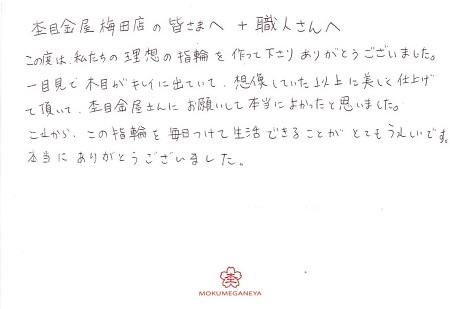 杢目金屋 梅田店の皆さまへ + 職人さんへ
この度は、私たちの理想の指輪を作って下さりありがとうございました。
一目見て木目がキレイに出ていて、想像していた以上に美しく仕上げ
て頂いて、杢目金屋さんにお願いして本当によかったと思いました。
これから、この指輪を毎日つけて生活できることがとてもうれしいです。
本当にありがとうございました。
MOKUMEGANEYA